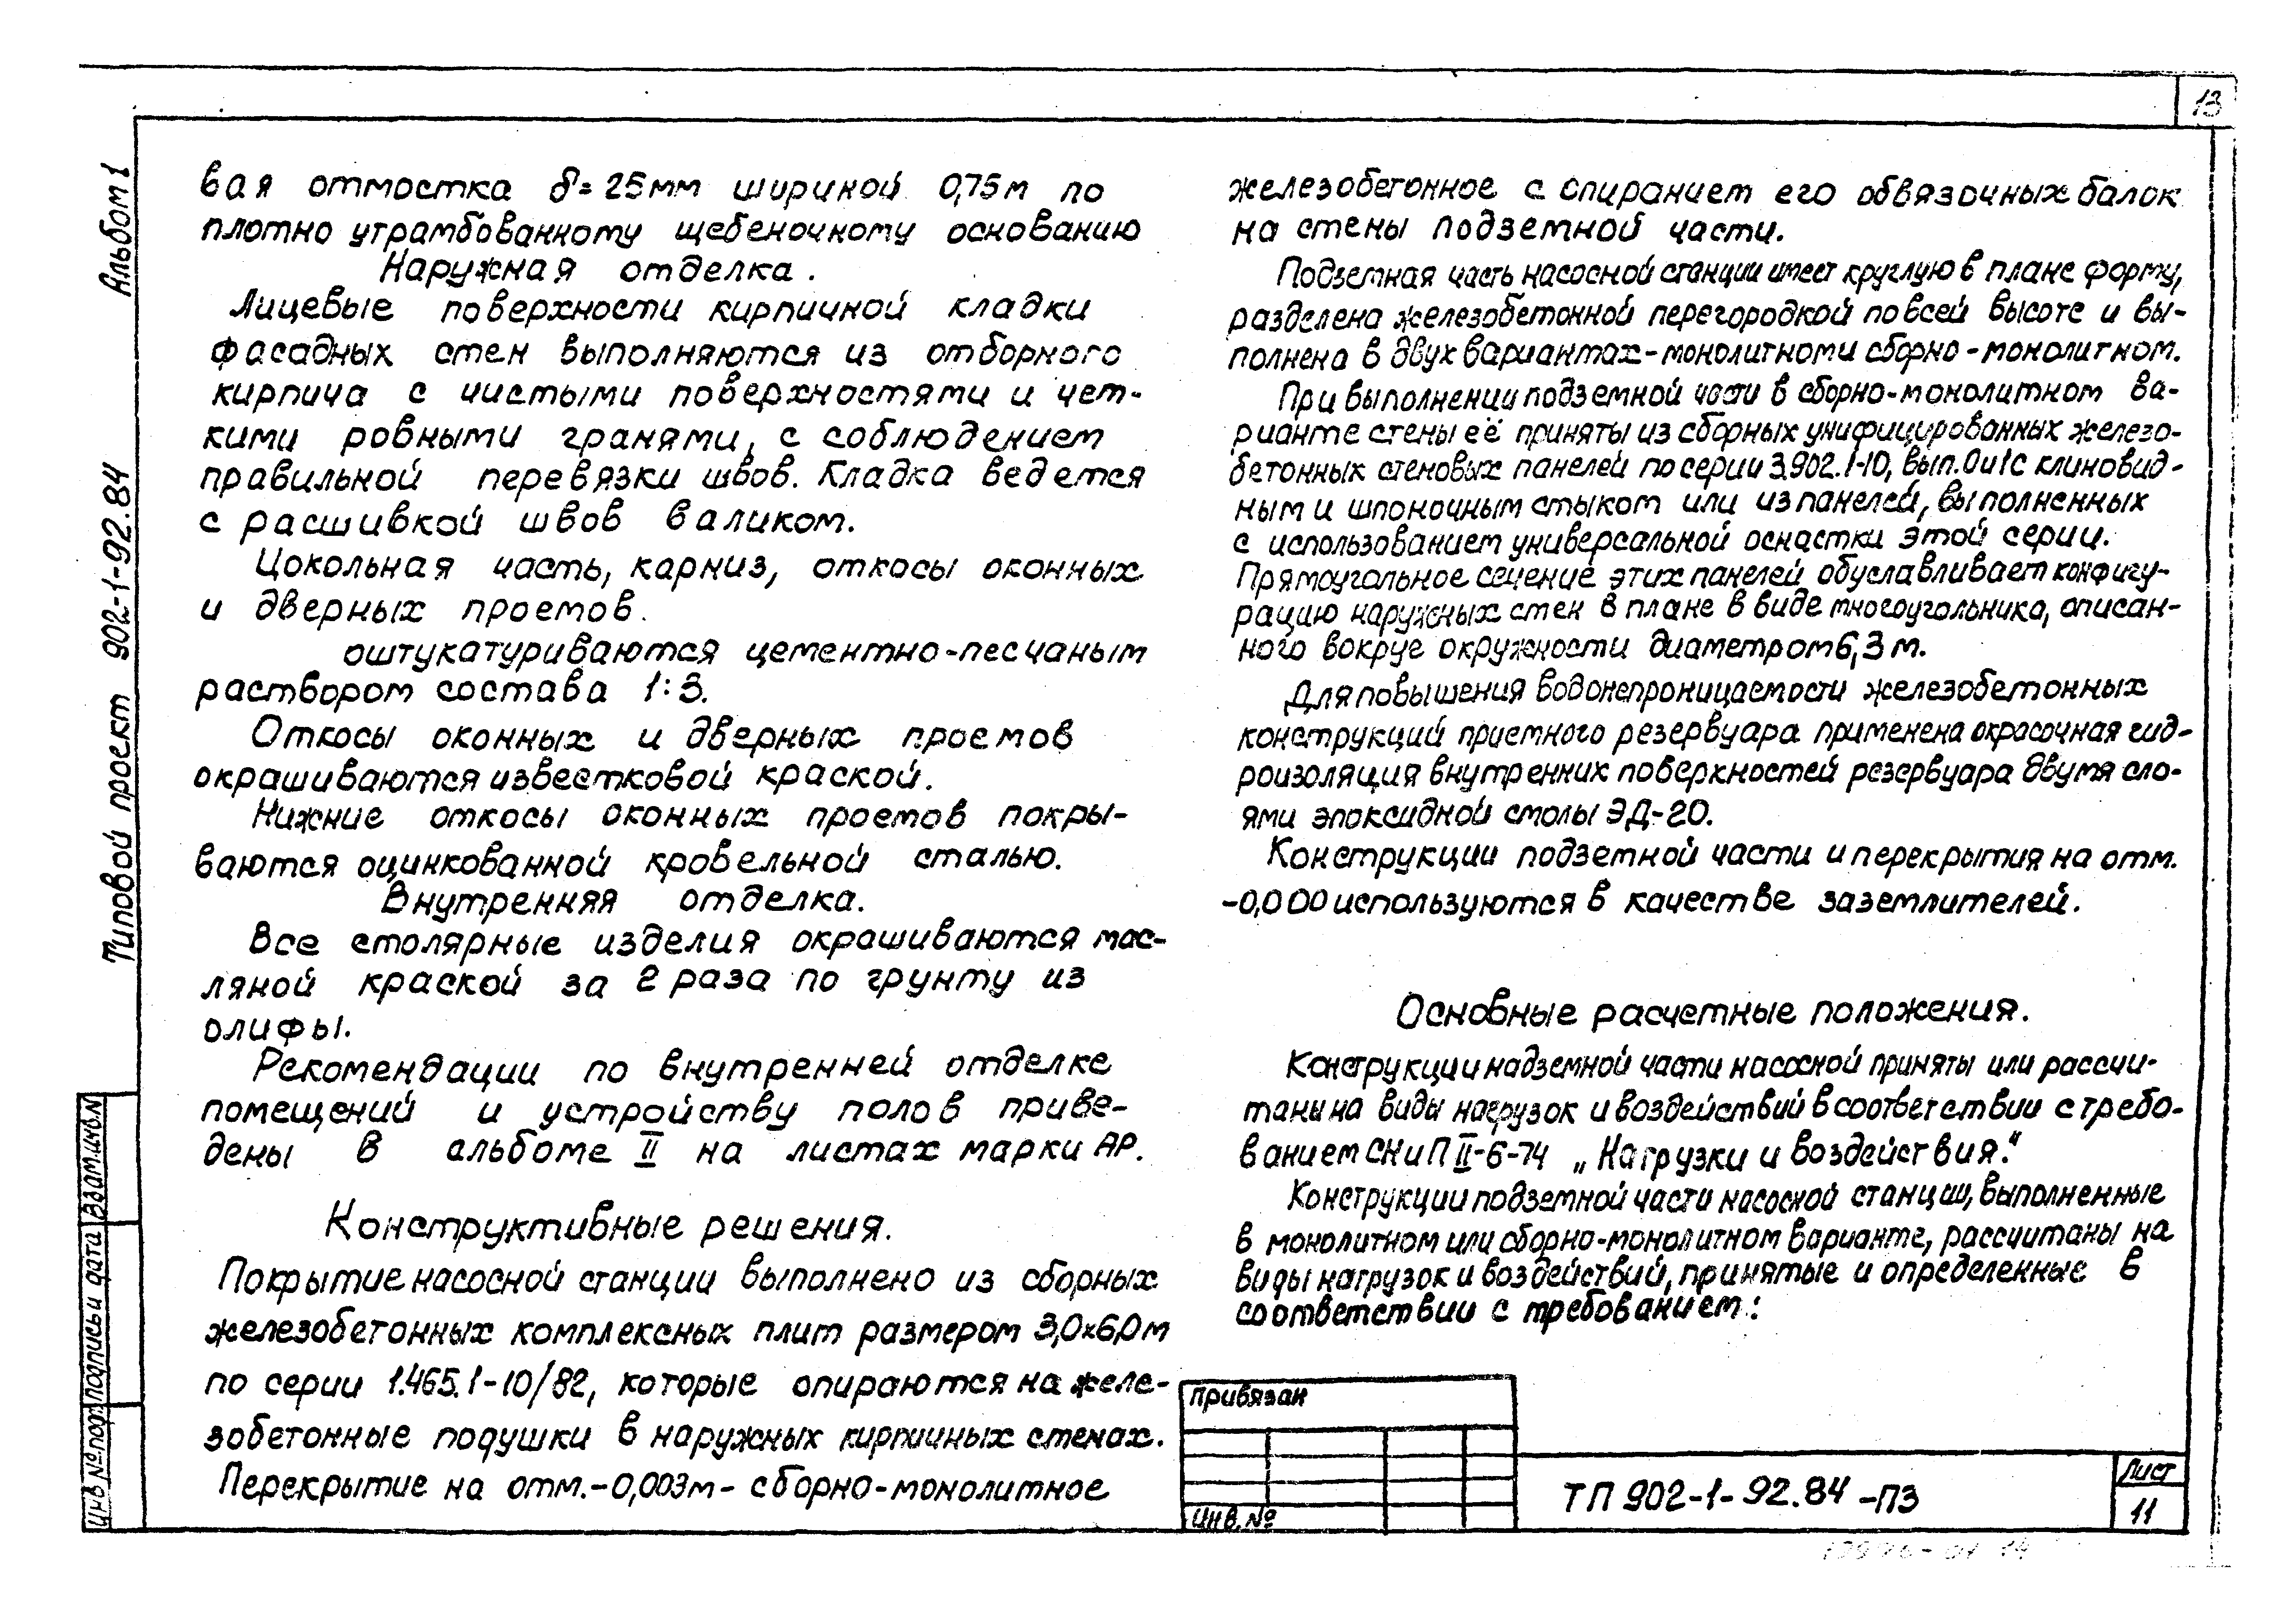 13
Альбом 1
Типовой проект 902-1-92.84
вая отмостка δ=25мм шириной 0,75м по
плотно утрамбованному щебеночному основанию
Наружная отделка.
Лицевые поверхности кирпичной кладки
фасадных стен выполняются из отборного
кирпича с чистыми поверхностями и чет-
кими ровными гранями, с соблюдением
правильной перевязки швов. Кладка ведется
с расшивкой швов валиком.
Цокольная часть, карниз, откосы оконных
и дверных проемов.
оштукатуриваются цементно-песчаным
раствором состава 1:3.
Откосы оконных и дверных проемов
окрашиваются известковой краской.
Нижние откосы оконных проемов покры-
ваются оцинкованной кровельной сталью.
Внутренняя отделка.
Все столярные изделия окрашиваются мас-
ляной краской за 2 раза по грунту из
олифы.
Рекомендации по внутренней отделке
помещений и устройству полов приве-
дены в альбоме II на листах марки АР.
Конструктивные решения.
Покрытие насосной станции выполнено из сборных
железобетонных комплексных плит размером 3,0х6,0м
по серии 1.465.1-10/82, которые опираются на желе-
зобетонные подушки в наружных кирпичных стенах.
Перекрытие на отм.-0,003м- сборно-монолитное
железобетонное с опиранием его обвязочных балок
на стены подземной части.
Подземная часть насосной станции имеет круглую в плане форму,
разделена железобетонной перегородкой по всей высоте и вы-
полнена в двух вариантах-монолитном и сборно-монолитном.
При выполнении подземной части в сборно-монолитном ва-
рианте стены её приняты из сборных унифицированных железо-
бетонных стеновых панелей по серии 3.902.1-10, вып.0и1с клиновид-
ным и шпоночным стыком или из панелей, выполненных
с использованием универсальной оснастки этой серии.
Прямоугольное сечение этих панелей обуславливает конфигу-
рацию наружных стен в плане в виде многоугольника, описан-
ного вокруг окружности диаметром 6,3 м.
Для повышения водонепроницаемости железобетонных
конструкций приемного резервуара применена окрасочная гид-
роизоляция внутренних поверхностей резервуара двумя сло-
ями эпоксидной смолы ЭД-20.
Конструкции подземной части и перекрытия на отм.
-0,000 используются в качестве заземлителей.
Основные расчетные положения.
Конструкции надземной части насосной приняты или рассчи-
таны на виды нагрузок и воздействий в соответствии с требо-
ванием СНиП II-6-74 „Нагрузки и воздействия."
Конструкции подземной части насосной станции, выполненные
в монолитном или сборно-монолитном варианте, рассчитаны на
виды нагрузок и воздействий, принятые и определенные в
соответствии с требованием:
Взам.инв.N
подпись и дата
инв №под.
привязан
инв. №
ТП 902-1-92.84 -ПЗ
Лист
11